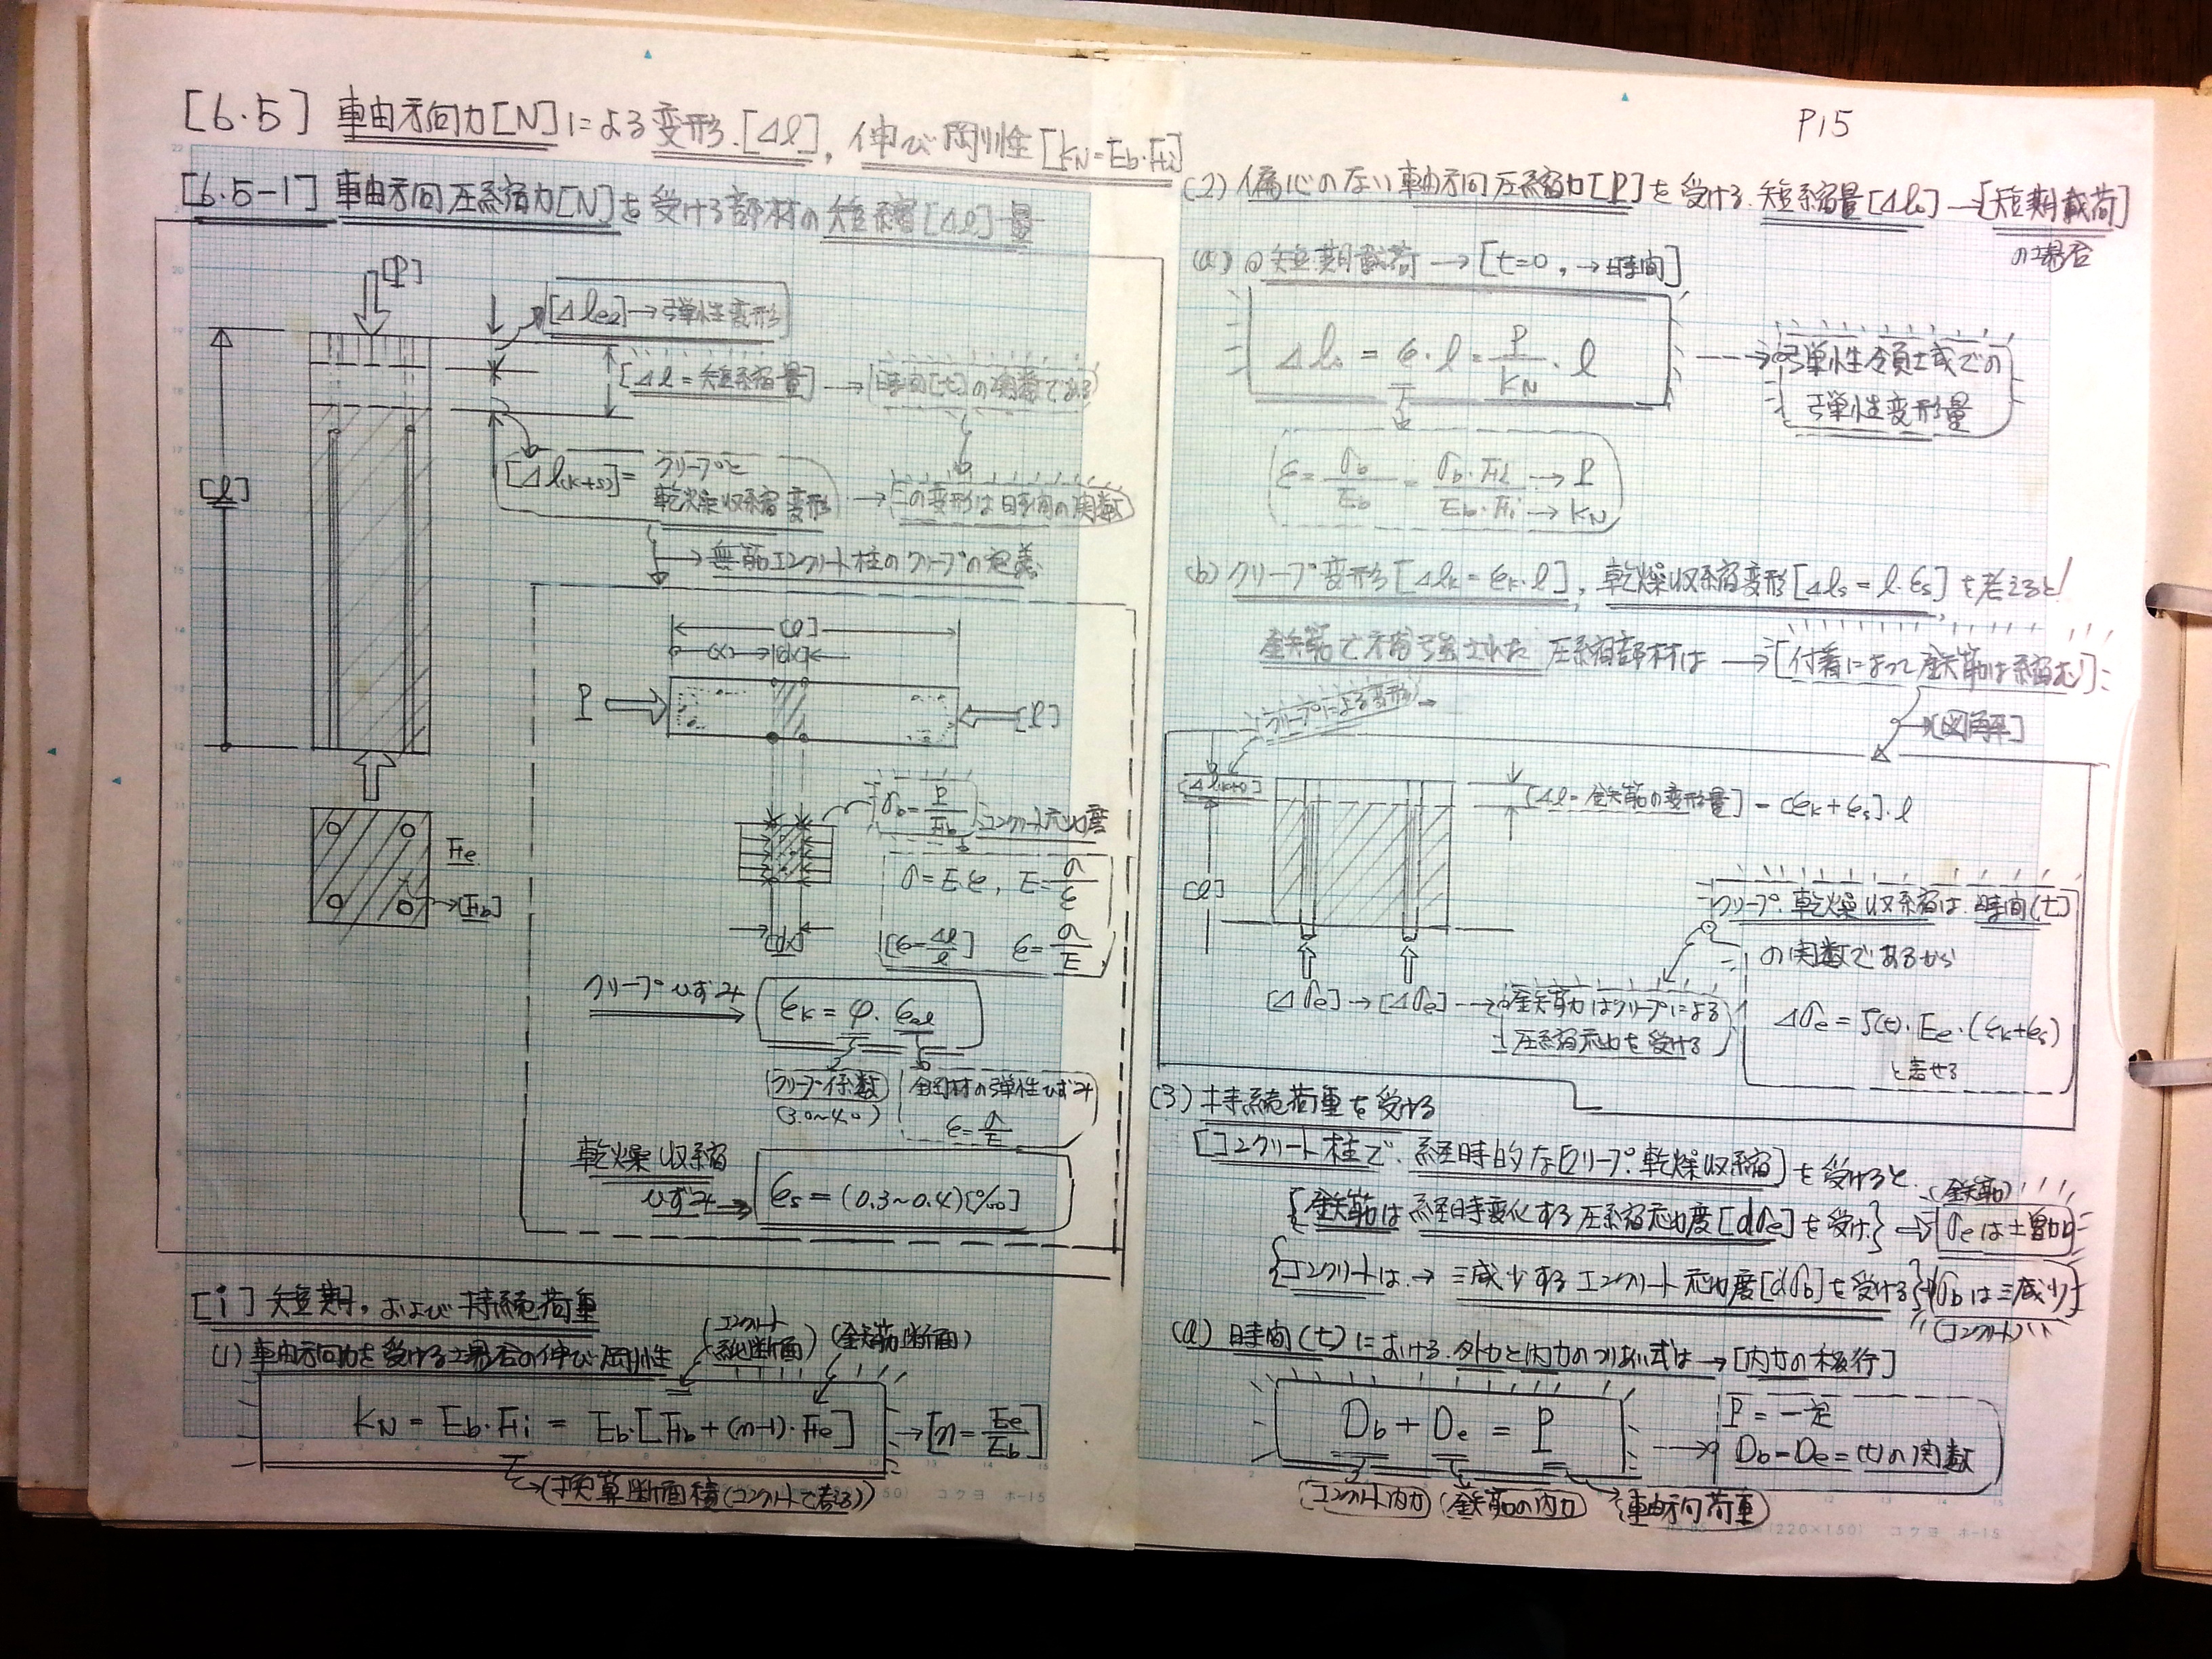 [6.5] 軸方向力[N]による変形.[Δl], 伸び剛性[KN=Eb・Fi]
[6.5-1] 軸方向圧縮力[N]を受ける部材の短縮[Δl]量
[P]
[Δlel]→弾性変形
[Δl=短縮量]→時間[t]の関数である
[l]
[Δl(k+s)]= クリープと
乾燥収縮変形
→この変形は時間の関数
→無筋コンクリート柱のクリープの定義
[l]
(x) [dx]
P
[P]
σb=P/Fb コンクリート応力度
Fe
→[Fb]
σ=E・ε, E=σ/ε
[ε=Δl/l] ε=σ/E
[dx]
クリープひずみ
εk=φ・εel
クリープ係数
(3.0~4.0)
鋼材の弾性ひずみ
ε=σ/E
乾燥収縮
ひずみ→ εs=(0.3~0.4)[‰]
[i] 短期. および持続荷重
(1) 軸方向力を受ける場合の伸び剛性
(コンクリート純断面) (鉄筋断面)
KN=Eb・Fi=Eb・[Fb+(n-1)・Fe] →[n=Ee/Eb]
→(換算断面積(コンクリートで考える))
P15
(2) 偏心のない軸方向圧縮力[P]を受ける.短縮量[Δlo]→[短期載荷]
の場合
(a) @短期載荷→[t=0,→時間]
Δlo=ε・l=P/KN・l
→弾性領域での
弾性変形量
ε=σb/Eb=σb・Fi/Eb・Fi →P →KN
(b) クリープ変形[Δlk=εk・l], 乾燥収縮変形[Δls=l・εs]を考えると!
鉄筋で補強された圧縮部材は→[付着によって鉄筋は縮む]
→[図解]
クリープによる変形
[Δl(k+s)]
[Δl=鉄筋の変形量]=(εk+εs)・l
[l]
クリープ.乾燥収縮は.時間(t)
の関数であるから
[Δσe]→[Δσe]→鉄筋力はクリープによる
圧縮応力を受ける
Δσe=ζ(t)・Ee・(εk+εs)
と表せる
(3) 持続荷重を受ける
[コンクリート柱で.経時的な[クリープ.乾燥収縮]を受けると.
(鉄筋)
{鉄筋は経時変化する圧縮応力度[dσe]を受け}→[σeは増加]
{コンクリートは→減少するコンクリート応力度[dσb]を受ける}(σbは減少)
(コンクリート)
(a) 時間(t)における.外力と内力のつり合い式は→[内力の移行]
Db+De=P
P=一定
Db-De=(t)の関数
(コンクリート内力) (鉄筋の内力) (軸方向荷重)
(220×150) コクヨ ホ-15
コクヨ ホ-15